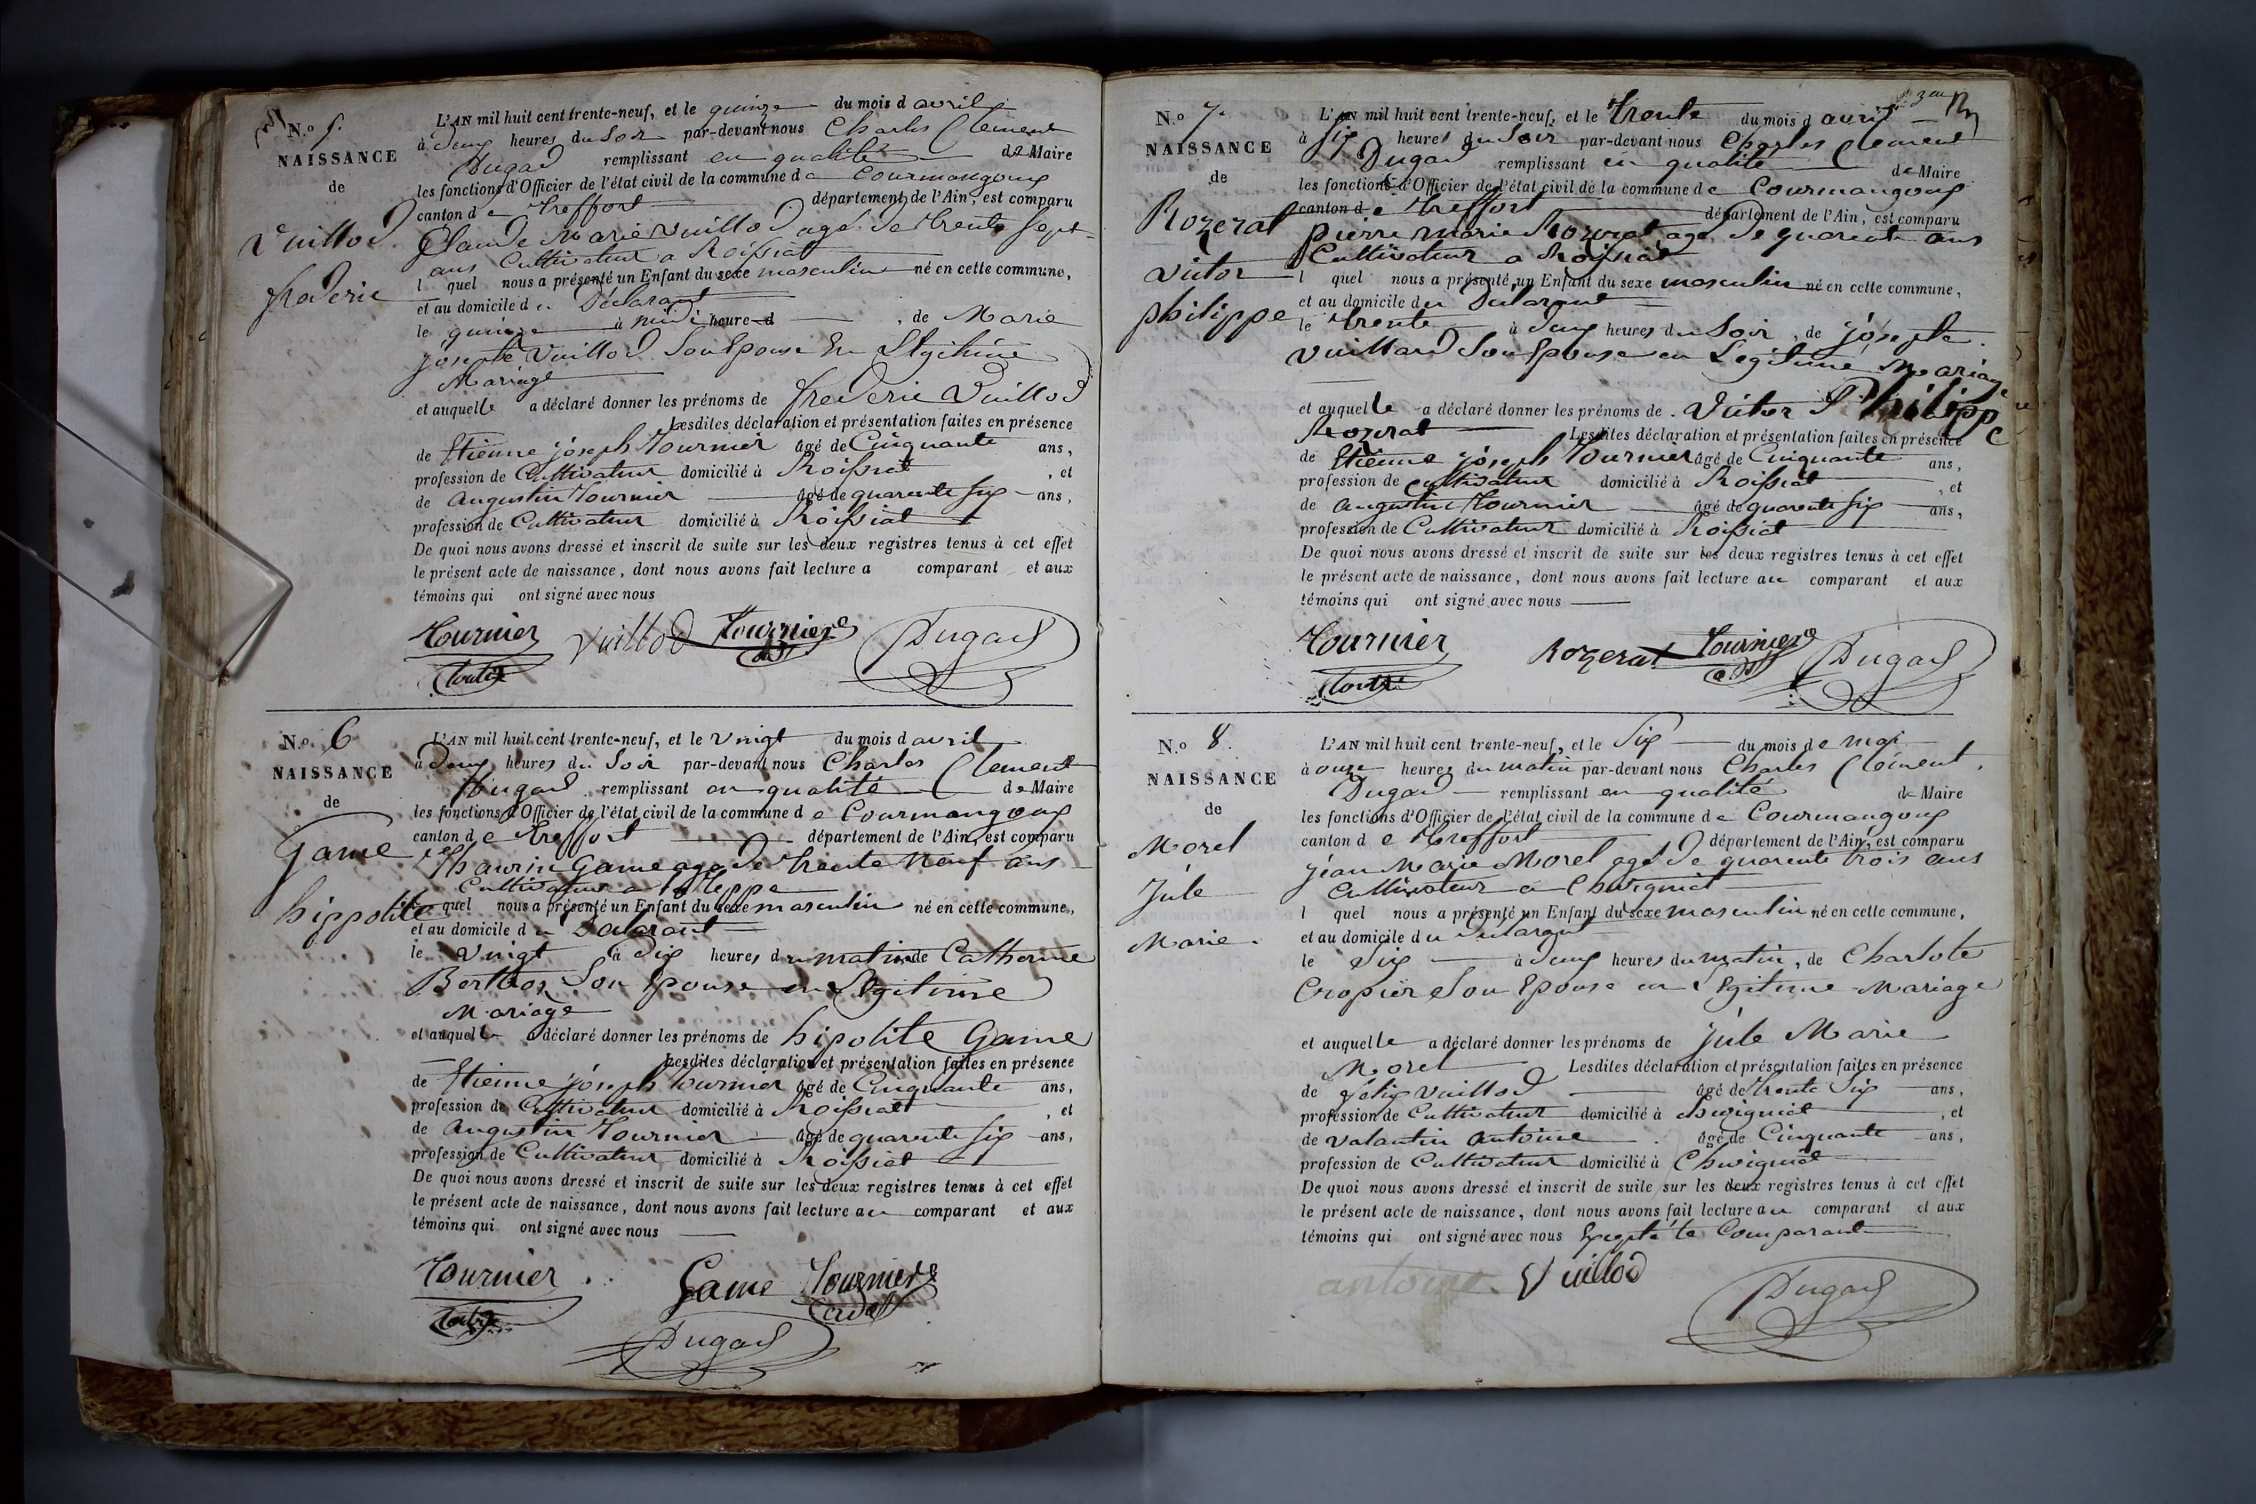 N.º 5.
NAISSANCE
de
Vuillod
frederic
L'AN mil huit cent trente-neuf, et le quinze du mois d avril
à Deux heures du Soir par-devant nous Charles Clement
Dugad remplissant en qualité de Maire
les fonctions d'Officier de l'état civil de la commune de Courmangoux
canton de Treffort département de l'Ain, est comparu
Claude Marie Vuillod agé de trente Sept
ans Cultivateur a Roissiat
l quel nous a présenté un Enfant du sexe masculin né en cette commune,
et au domicile du Déclarant
le quinze à midi heure d , de Marie
josephe Vuillod Son Epouse En Legitime
Mariage
et auquelle a déclaré donner les prénoms de frederic Vuillod
Lesdites déclaration et présentation faites en présence
de Etienne joseph Tournier âgé de Cinquante ans,
profession de Cultivateur domicilié à Roissiat , et
de augustin Tournier âgé de quarente Six ans,
profession de Cultivateur domicilié à Roissiat
De quoi nous avons dressé et inscrit de suite sur les deux registres tenus à cet effet
le présent acte de naissance, dont nous avons fait lecture a comparant et aux
témoins qui ont signé avec nous
Tournier Vuillod Tournier Dugad
N.º 6
NAISSANCE
de
Game
hippolite
L'AN mil huit cent trente-neuf, et le vingt du mois d avril
à Deux heures du Soir par-devant nous Charles Clement
Dugad remplissant en qualité de Maire
les fonctions d'Officier de l'état civil de la commune de Courmangoux
canton de Treffort département de l'Ain, est comparu
Game agé de trente neuf ans
Cultivateur a
le quel nous a présenté un Enfant du sexe masculin né en cette commune,
et au domicile du Déclarant
le vingt à Dix heures du matin de Catherine
Son Epouse en Legitime
Mariage
et auquelle a déclaré donner les prénoms de hipolite Game
Lesdites déclaration et présentation faites en présence
de Etienne joseph Tournier âgé de Cinquante ans,
profession de Cultivateur domicilié à Roissiat , et
de augustin Tournier âgé de quarente six ans,
profession de Cultivateur domicilié à Roissiat
De quoi nous avons dressé et inscrit de suite sur les deux registres tenus à cet effet
le présent acte de naissance, dont nous avons fait lecture au comparant et aux
témoins qui ont signé avec nous
Tournier Game Tournier
Dugad
N.º 7.
NAISSANCE
de
Rozerat
Victor
philippe
L'AN mil huit cent trente-neuf, et le trente du mois d avril
à six heures du Soir par-devant nous Charles Clement
Dugad remplissant en qualité de Maire
les fonctions d'Officier de l'état civil de la commune de Courmangoux
canton de Treffort département de l'Ain, est comparu
pierre marie Rozerat agé de quarente ans
Cultivateur a Roissiat
l quel nous a présenté un Enfant du sexe masculin né en cette commune,
et au domicile du Déclarant
le trente à Deux heures du Soir, de josephte
Vuillard Son Epouse en Legitime Mariage
et auquelle a déclaré donner les prénoms de Victor Philippe
Rozerat Lesdites déclaration et présentation faites en présence
de Etienne joseph Tournier âgé de Cinquante ans,
profession de Cultivateur domicilié à Roissiat , et
de augustin Tournier âgé de quarente six ans,
profession de Cultivateur domicilié à Roissiat
De quoi nous avons dressé et inscrit de suite sur les deux registres tenus à cet effet
le présent acte de naissance, dont nous avons fait lecture au comparant et aux
témoins qui ont signé avec nous
Tournier Rozerat Tournier Dugad
N.º 8.
NAISSANCE
de
Morel
Jule
Marie.
L'AN mil huit cent trente-neuf, et le Six du mois de mai
à onze heures du matin par-devant nous Charles Clement
Dugad remplissant en qualité de Maire
les fonctions d'Officier de l'état civil de la commune de Courmangoux
canton de Treffort département de l'Ain, est comparu
jean Marie Morel agé de quarente trois ans
Cultivateur a Chevignat
l quel nous a présenté un Enfant du sexe masculin né en cette commune,
et au domicile du Declarant
le Six à Deux heures du matin, de Charlote
Cropier Son Epouse en Legitime Mariage
et auquelle a déclaré donner les prénoms de jule Marie
Morel Lesdites déclaration et présentation faites en présence
de félix Vuillod âgé de trente Six ans,
profession de Cultivateur domicilié à , et
de valantin antoine âgé de Cinquante ans,
profession de Cultivateur domicilié à
De quoi nous avons dressé et inscrit de suite sur les deux registres tenus à cet effet
le présent acte de naissance, dont nous avons fait lecture au comparant et aux
témoins qui ont signé avec nous Excepté le Comparant
antoine Vuillod
Dugad